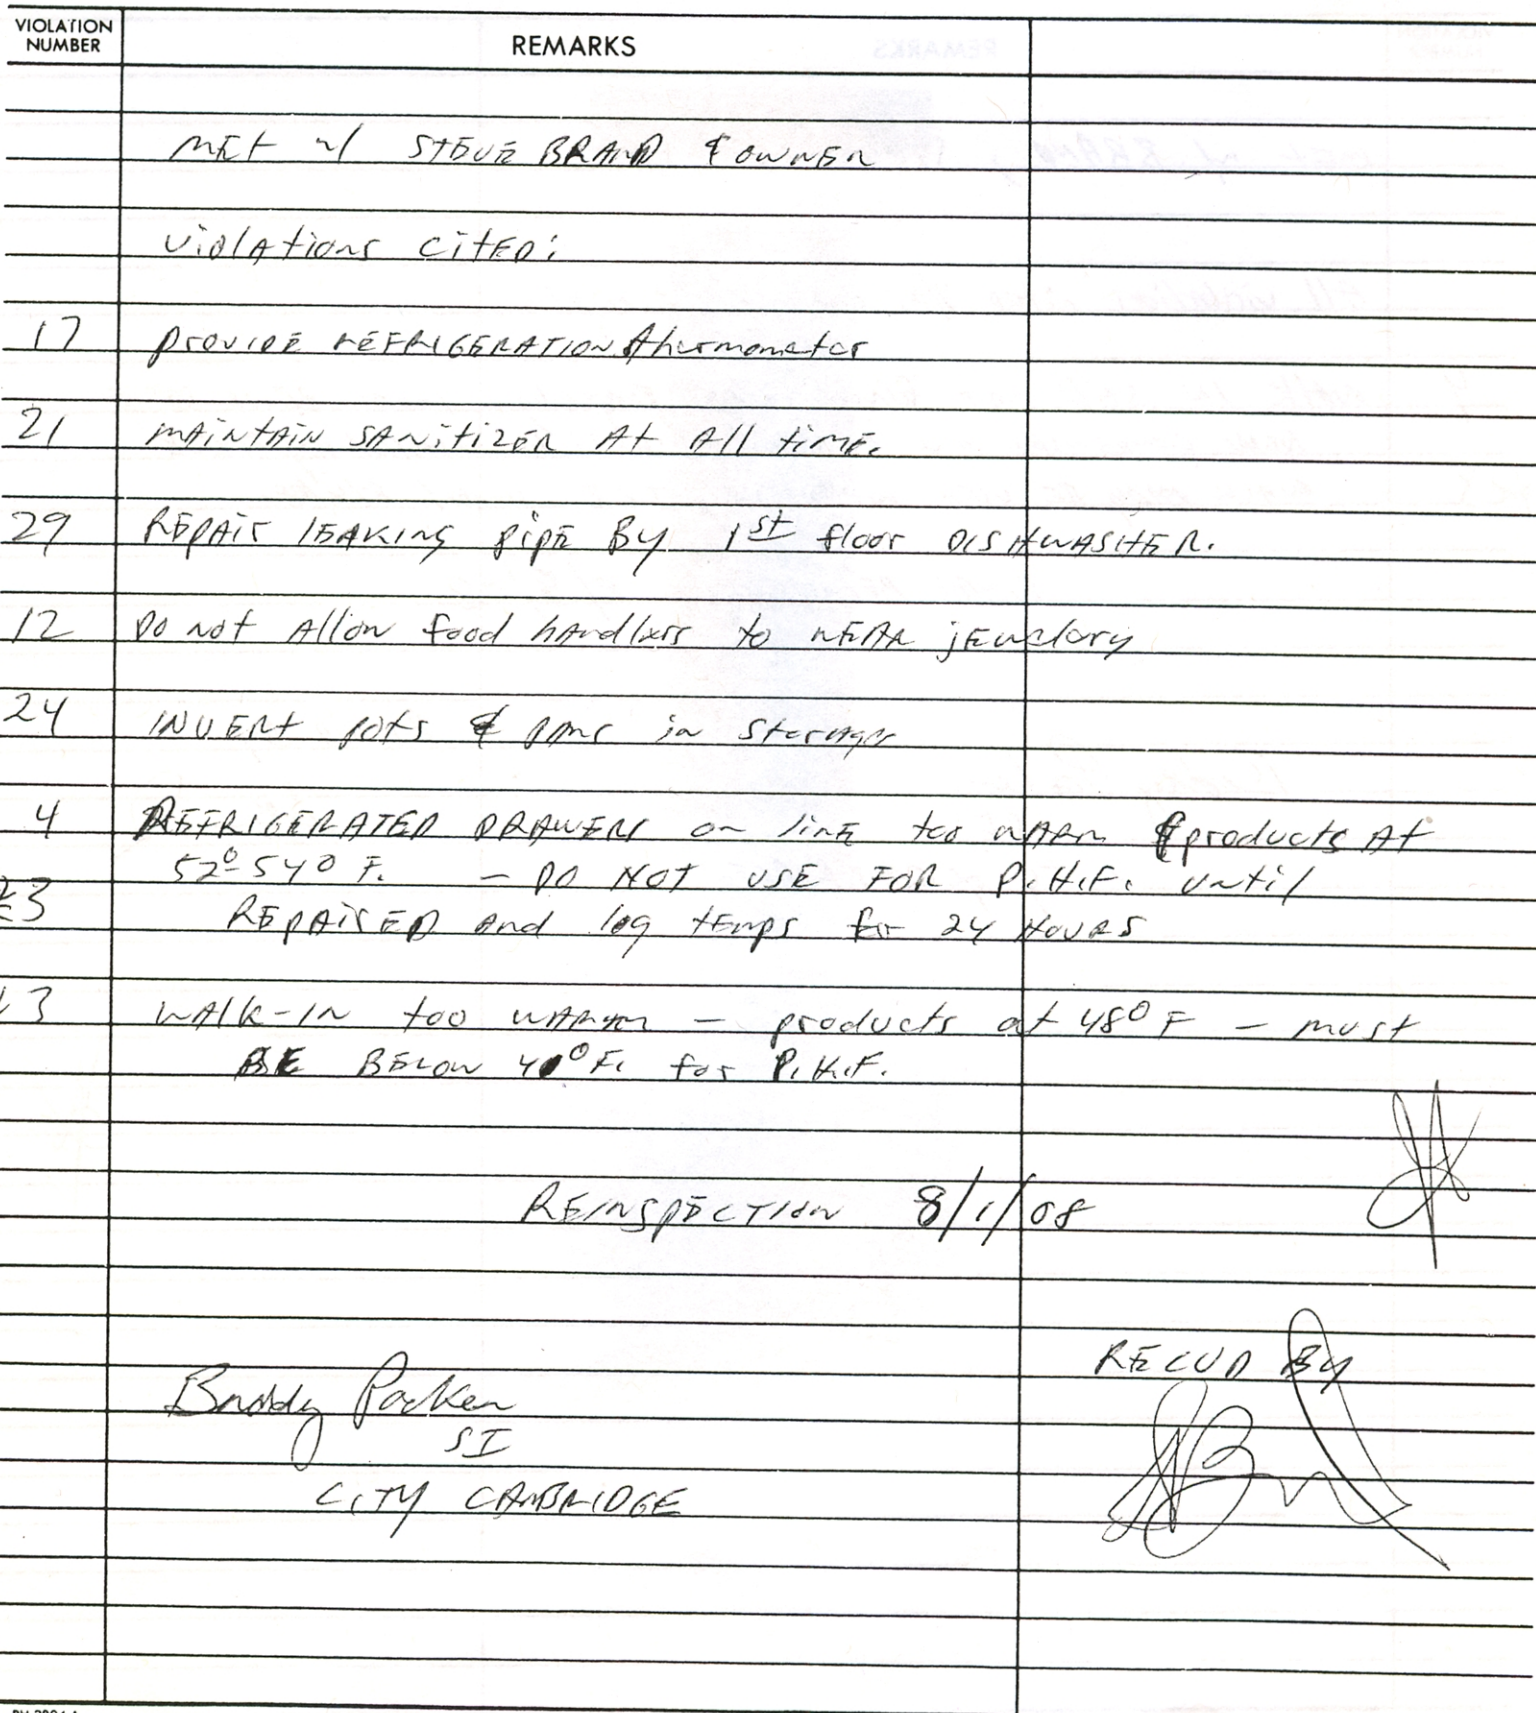 VIOLATION NUMBER REMARKS
MEt w/ STEVE BRAND & OWNER
ViolAtions CitED:
17 PROVIDE REFRIGERATION thermometer
21 MAINTAIN SANitiZER At All tiME.
29 REPAir lEAKING PiPE By 1st floor DISHWASHER.
12 DO Not Allow food handlers to wEAR jEwelory
24 INVERt pots & pans in Storage
4 REFRIGERATED DRAWERS on liNE too wARm & products At
52°-54° F. – DO NOT USE FOR P.H.F. until
&3 REPAiRED and log temps for 24 HOURS
&3 WALK-IN too WARM – products at 48°F – must
BE BELOW 40°F. for P.H.F.
REINSPECTION 8/1/08
RECVD By
Buddy Packer
SI
CITY CAMBRIDGE